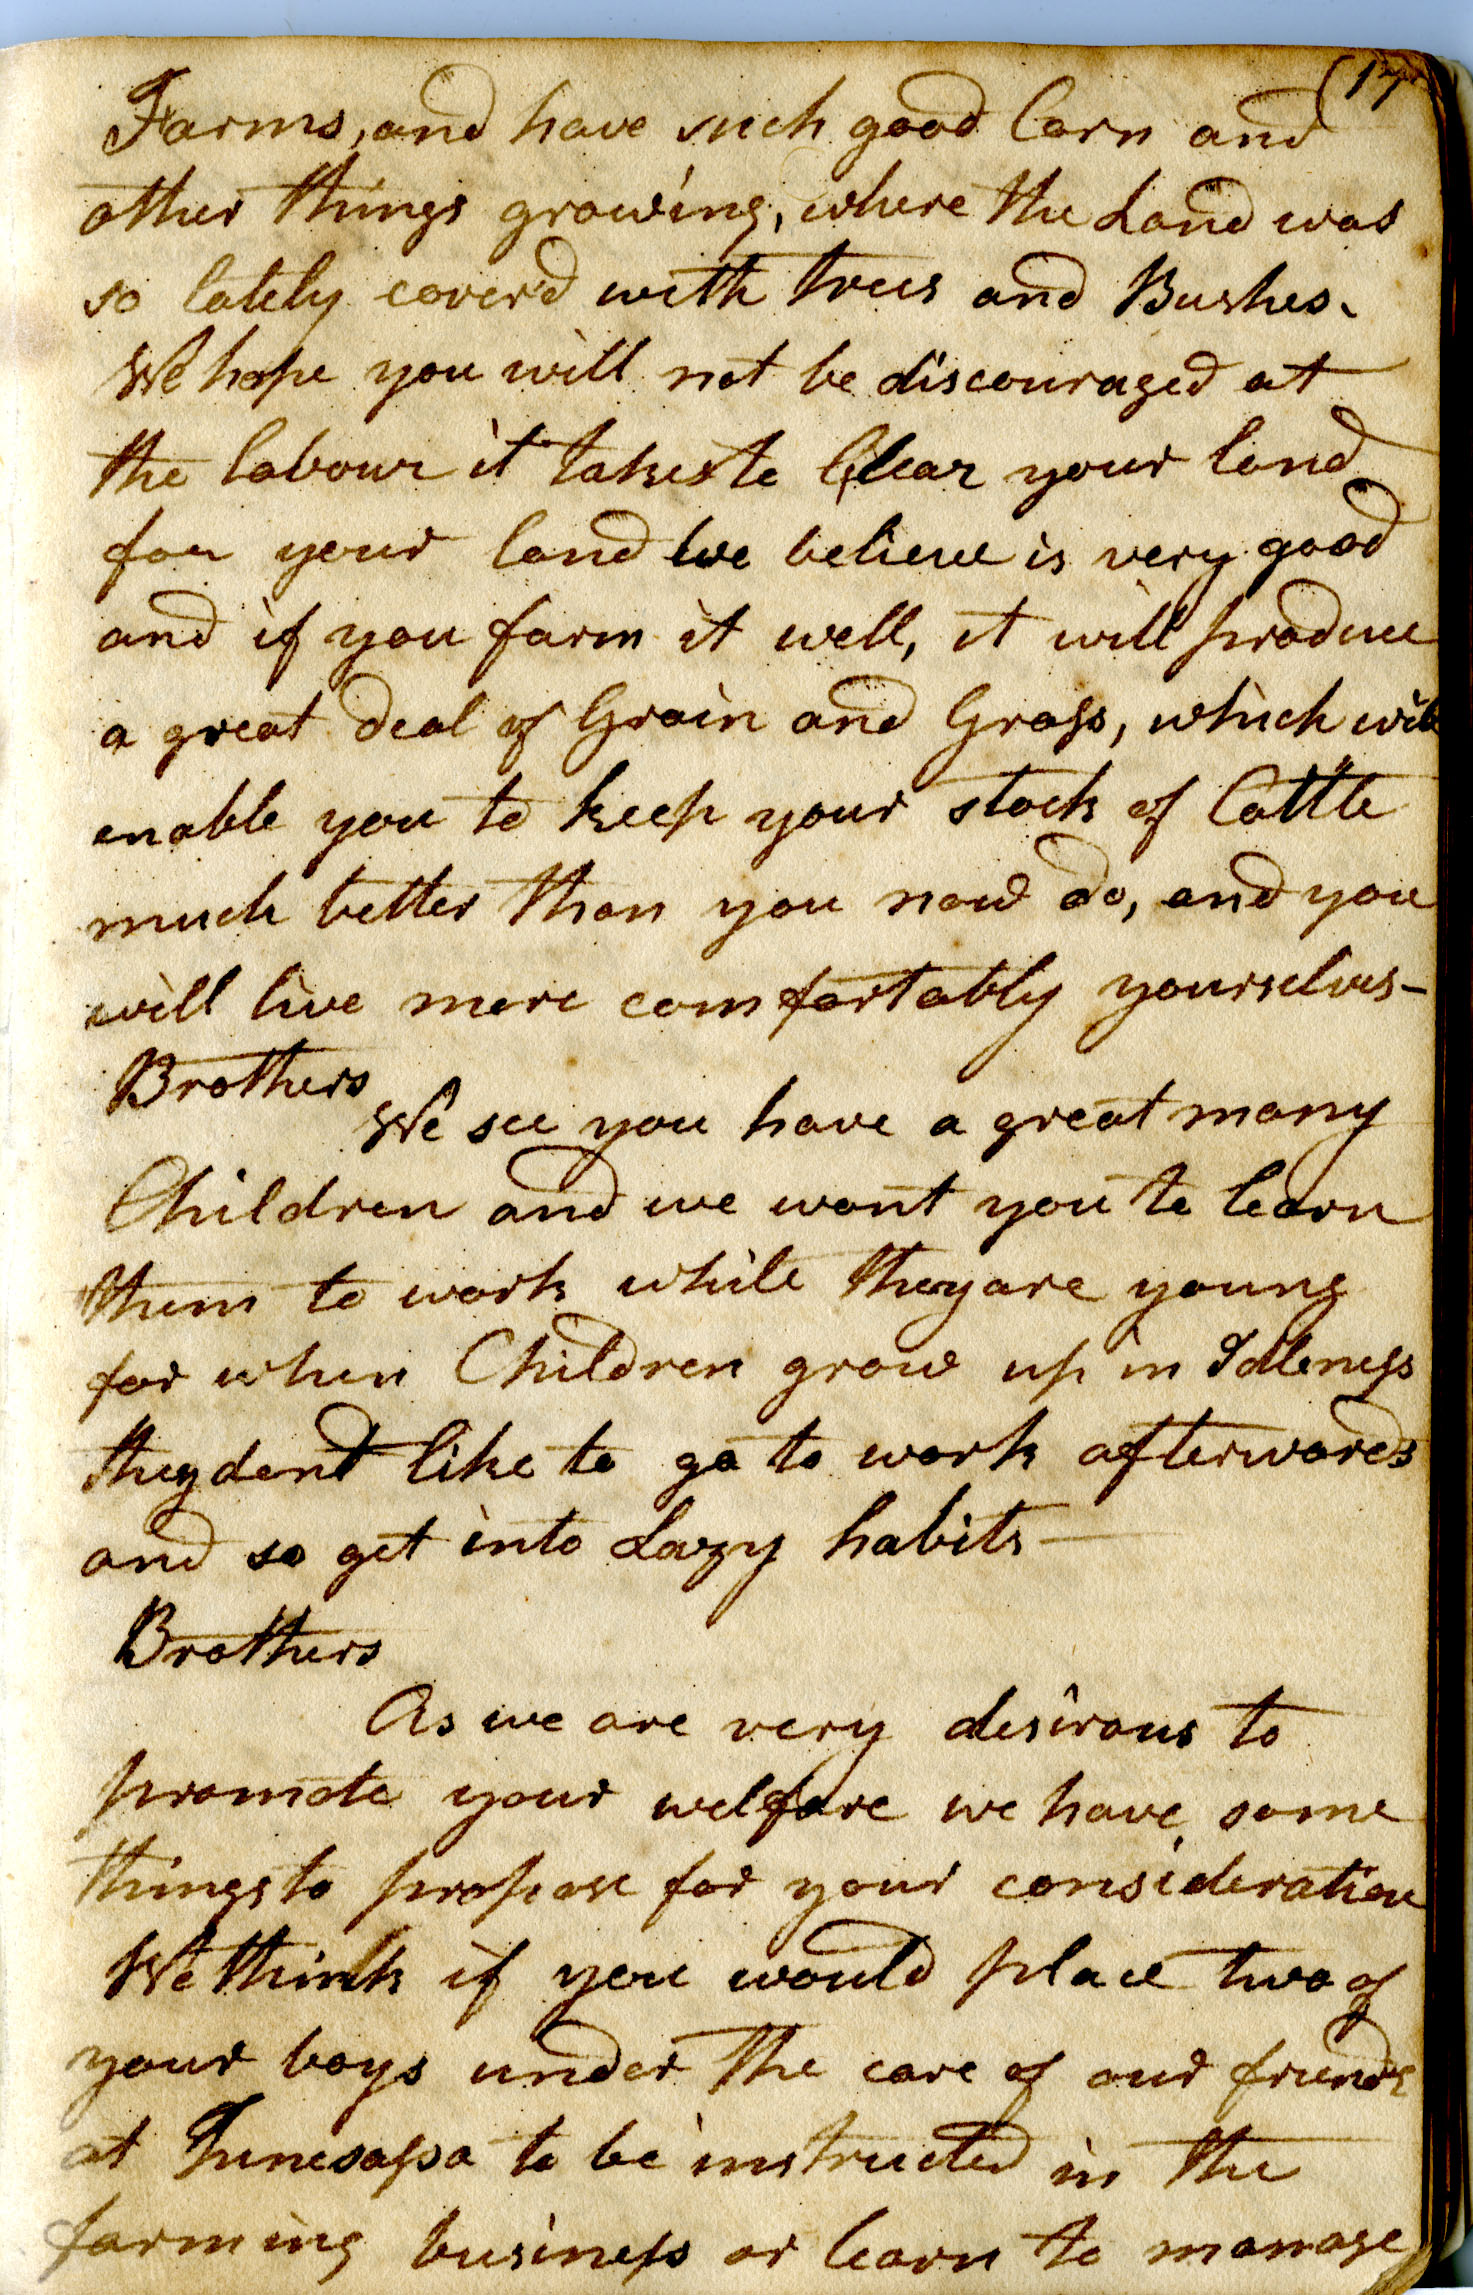 (17
Farms, and have such good Corn and
other things growing, where the Land was
so lately cover'd with trees and Bushes.
We hope you will not be discouraged at
the labour it takes to Clear your land
for your land we believe is very good
and if you farm it well, it will produce
a great deal of Grain and Grass, which will
enable you to keep your stock of Cattle
much better than you now do, and you
will live more comfortably yourselves—
Brothers
We see you have a great many
Children and we want you to learn
them to work while they are young
for when Children grow up in Idleness
they dont like to go to work afterwards
and so get into Lazy habits—
Brothers
As we are very desirous to
promote your welfare we have some
things to propose for your consideration
We think if you would place two of
your boys under the care of our friends
at Tunesassa to be instructed in the
farming business or learn to manage